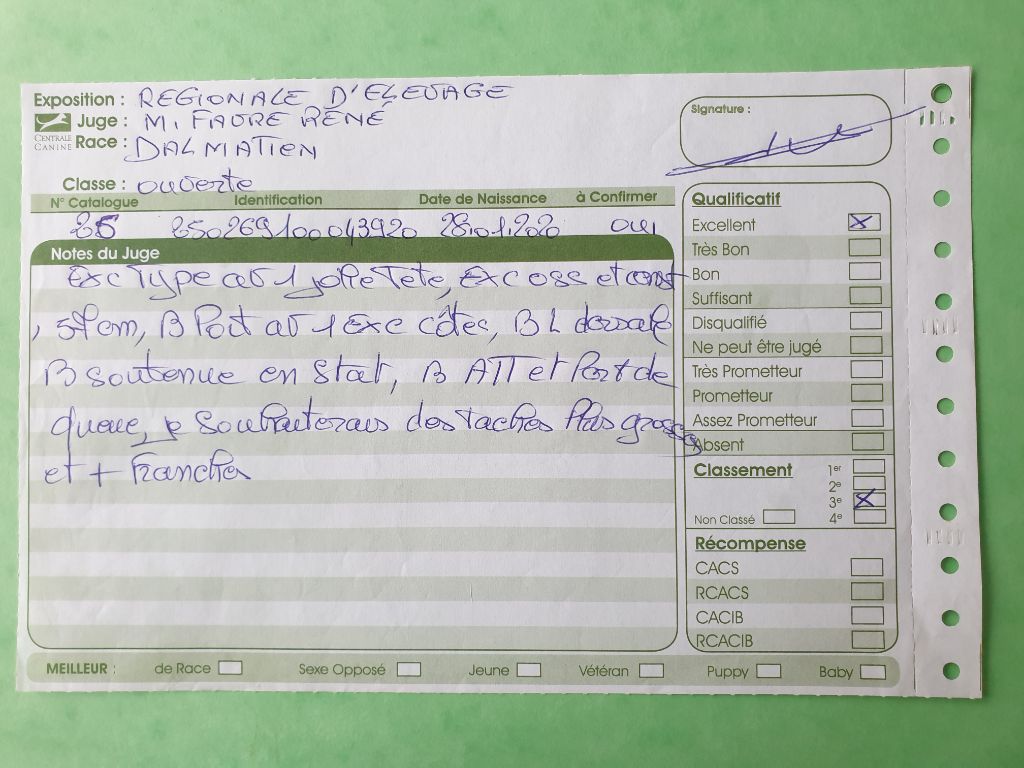 Exposition : REGIONALE D'ELEVAGE
Juge : M. FAURE RENÉ
CENTRALE
CANINE
Race : DALMATIEN
Classe : ouverte
Signature :
N° Catalogue Identification Date de Naissance à Confirmer
25 250269100043920 28.01.2020 oui
Notes du Juge
Exc Type av 1 jolie Tete, Exc oss et const
, 59cm, B Poit av 1 exc côtes, B L dorsale
B soutenue en stat, B ATT et Port de
queue, je souhaiterais des taches Plus grosses
et + Franches
Qualificatif
Excellent X
Très Bon
Bon
Suffisant
Disqualifié
Ne peut être jugé
Très Prometteur
Prometteur
Assez Prometteur
Absent
Classement 1er
2e
3e X
Non Classé 4e
Récompense
CACS
RCACS
CACIB
RCACIB
MEILLEUR : de Race Sexe Opposé Jeune Vétéran Puppy Baby